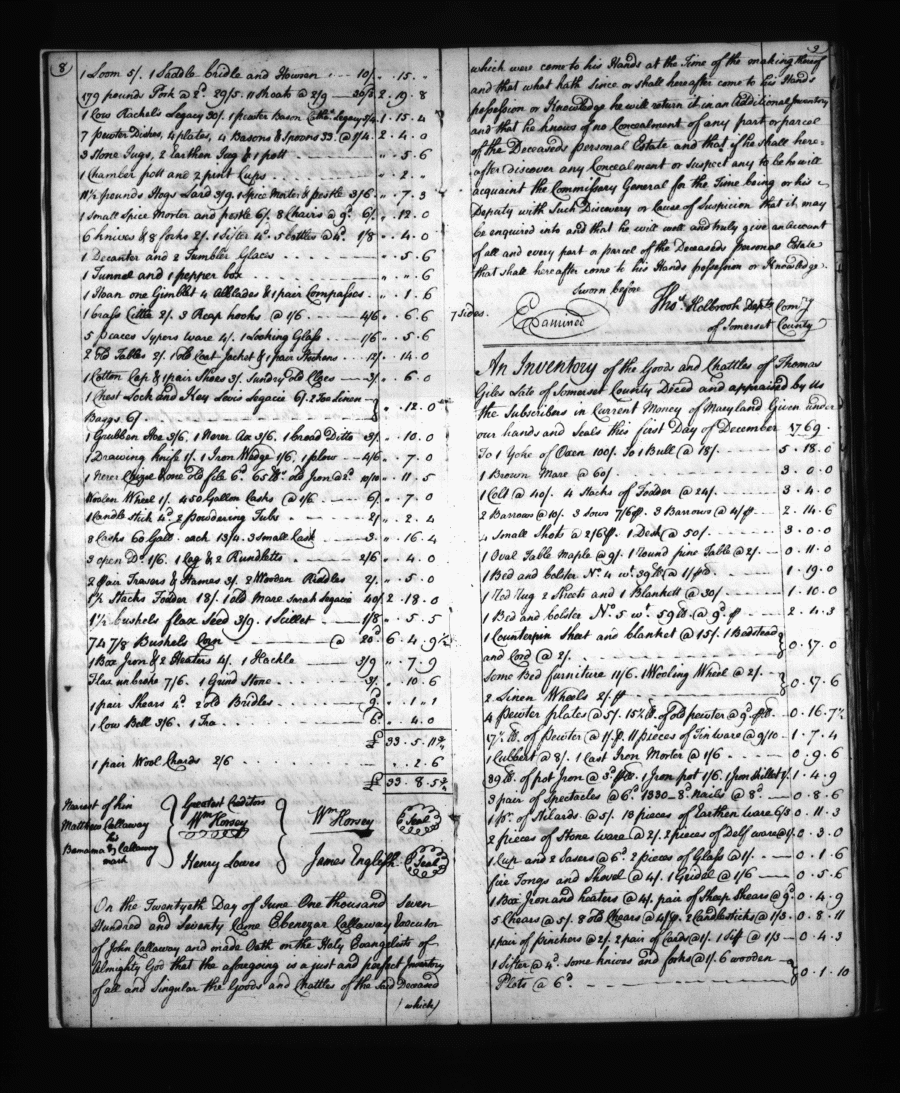 8
1 Loom 5/. 1 Saddle bridle and Howsen - - - 10/. " . 15 . "
179 pounds Pork @ 2d. 29/5. 11 Shoats @ 2/9 — 30/3 2 . 19 . 8
1 Cow Rachels Legacy 30/. 1 pewter Bason Legacy 1 . 15 . 4
7 pewter Dishes, 4 plates, 4 Basons & Spoons 33. @ 1/4. 2 . 4 . 0
3 Stone Jugs, 2 Earthen Jug & 1 pott - - - - " . 5 . 6
1 Chamber pott and 2 print Cups - - - " . 2 . "
11½ pounds Hogs Lard 3/9. 1 Spice Morter & pestle 3/6 " . 7 . 3
1 Small Spice Morter and pestle 6/. 8 Chairs @ 9d. 6/. " . 12 . 0
6 knives & 8 forks 2/. 1 Sifter 4d. 5 bottles @ 4d. 1/8 " . 4 . 0
1 Decanter and 2 Tumbler Glaces - - - - " . 5 . 6
1 Tunnel and 1 pepper box - - - - " . " . 6
1 Hoan one Gimblet 4 Allblades & 1 pair Compasses - " . 1 . 6
1 brass Cettle 2/. 3 Reap hooks @ 1/6 —— 4/6 " . 6 . 6
5 pieaces Sypers ware 4/. 1 Looking Glass - - 1/6 " . 5 . 6
2 Old Tables 2/. 1 Old Coat Jacket & 1 pair Stockens - - 12/. " . 14 . 0
1 Cotton Cap & 1 pair Shoes 3/. Sundry old Cloes —— 3/. " . 6 . 0
1 Chest Lock and Key Levis Legacie 6/. 2 Tow Linen
Baggs 6/. - - - - " . 12 . 0
1 Grubben Hoe 3/6. 1 Narer Ax 3/6. 1 broad Ditto 3/. " . 10 . 0
1 Drawing knife 1/. 1 Iron Wedge 1/6. 1 plow — 4/6 " . 7 . 0
1 Narer Chizel & one old file 6d. 65 lbs. old Iron @ 2d. 10/10 " . 11 . 5
Woolen Wheel 1/. 4 50 Gallon Casks @ 1/6 —— 6/. " . 7 . 0
1 Candle Stick 4d. 2 Powdering Tubs - - - 2/. " . 2 . 4
8 Casks 60 Gall. each 13/4. 3 Small Cask - - 3. " . 16 . 4
3 open Do. 1/6. 1 Keg & 2 Rundletts - - - 2/6 " . 4 . 0
2 pair Travers & Hames 3/. 2 Wooden Riddles 2/. " . 5 . 0
1½ Stacks Fodder 18/. 1 old Mare Sarah Legacie 40/. 2 . 18 . 0
1½ bushels flax Seed 3/9. 1 Scillet —— 1/8 " . 5 . 5
74 7/8 Bushels Corn —— @ 20d. 6 . 4 . 9½
1 Box Iron & 2 Heaters 4/. 1 Hackle —— 3/9 " . 7 . 9
Flax unbroke 7/6. 1 Grind Stone - - - 3/. " . 10 . 6
1 pair Shears 4d. 2 old Bridles - - - 9d. " . 1 . 1
1 Cow Bell 3/6. 1 Tra - - - 6d. " . 4 . 0
£ 33 . 5 . 11¾
1 pair Wool Chards 2/6 - - - - " . 2 . 6
£ 33 . 8 . 5¾
Nearest of kin
Matthew Callaway
his
Callaway
mark
Greatest Creditors
Wm. Horsey
Henry Lowes
Wm. Horsey Seal
James English Seal
On the Twentyeth Day of June One thousand Seven
Hundred and Seventy Came Ebenezar Callaway Executor
of John Callaway and made Oath on the Holy Evangelists of
Almighty God that the aforegoing is a just and perfect Inventory
of all and Singular the Goods and Chattles of the Said Deceased
(which)
9
which were come to his Hands at the Time of the making thereof
and that what hath Since or shall hereafter come to his Hands
possession or Knowledge he will return it in an Additional Inventory
and that he knows of no Concealment of any part or parcel
of the Deceaseds Personal Estate and that if he shall here=
after discover any Concealment or suspect any to be he will
acquaint the Commissary General for the Time being or his
Deputy with Such Discovery or Cause of Suspicion that it may
be enquired into and that he will well and truly give an account
of all and every part or parcel of the Deceaseds Personal Estate
that shall hereafter come to his Hands possession or Knowledge
Sworn before
7 Sides. Examined Thos. Holbrook Depty. Comry.
of Somerset County
An Inventory of the Goods and Chattles of Thomas
Giles Late of Somerset County Deced and appraised by us
the Subscribers in Current Money of Maryland Given under
our hands and Seals this first Day of December 1769.
To 1 Yoke of Oxen 100/. To 1 Bull @ 18/. - - - 5 . 18 . 0
1 Brown Mare @ 60/. - - - 3 . 0 . 0
1 Colt @ 40/. 4 Stacks of Fodder @ 24/. - - - 3 . 4 . 0
2 Barrows @ 10/. 3 Sows 7/6 ps. 3 Barrows @ 4/ ps - - 2 . 14 . 6
4 Small Shots @ 2/6 ps. 1 Desk @ 50/. - - - 3 . 0 . 0
1 Oval Table Maple @ 9/. 1 Round pine Table @ 2/. - 0 . 11 . 0
1 Bed and bolster No. 4 wt. 39 lb @ 1/ pd. - - - 1 . 19 . 0
1 Rug 2 Sheets and 1 Blankett @ 30/. - - - 1 . 10 . 0
1 Bed and bolster No. 5 wt. 59 lb. @ 9d. p - - - 2 . 4 . 3
1 Counterpin Sheet and blanket @ 15/. 1 Badstead
and Cord @ 2/. - - - 0 . 17 . 0
Some Bed furniture 11/6. 1 Wooling Wheel @ 2/.
2 Linen Wheels 2/. ps - - - 0 . 17 . 6
4 Pewter plates @ 5/. 15½ lb. of old pewter @ 9d. - 0 . 16 . 7½
17½ lb. of Pewter @ 1/. p. 11 pieces of Tin ware @ 9/10 - 1 . 7 . 4
1 Cubbert @ 8/. 1 Cast Iron Morter @ 1/6 - - - 0 . 9 . 6
39 lb. of pot Iron @ 3d. 1 Iron pot 1/6. 1 Iron Skillet 1/. 1 . 4 . 9
3 pair of Spectacles @ 6d. 1330 - 8d. Nails @ 8d. - - 0 . 8 . 6
1 pr. of Stilards @ 5/. 18 pieces of Earthen ware 6/3 0 . 11 . 3
2 pieces of Stone ware @ 2/. 2 pieces of Delf ware @ 1/. 0 . 3 . 0
1 Cup and 2 Sasers @ 6d. 2 pieces of Glass @ 1/. - - 0 . 1 . 6
fire Tongs and Shovel @ 4/. 1 Gridel @ 1/6 - - - 0 . 5 . 6
1 Box Iron and heaters @ 4/. pair of Sheep Shears @ 9d. 0 . 4 . 9
5 Chears @ 5/. 8 old Chears @ 2 Candlesticks @ 1/3 - 0 . 8 . 11
1 pair of pinchers @ 2/. 2 pair of Cards @ 1/. 1 Sift @ 1/3 - 0 . 4 . 3
1 Sifter @ 4d. Some knives and forks @ 1/. 6 wooden
Plats @ 6d. - - - - 0 . 1 . 10